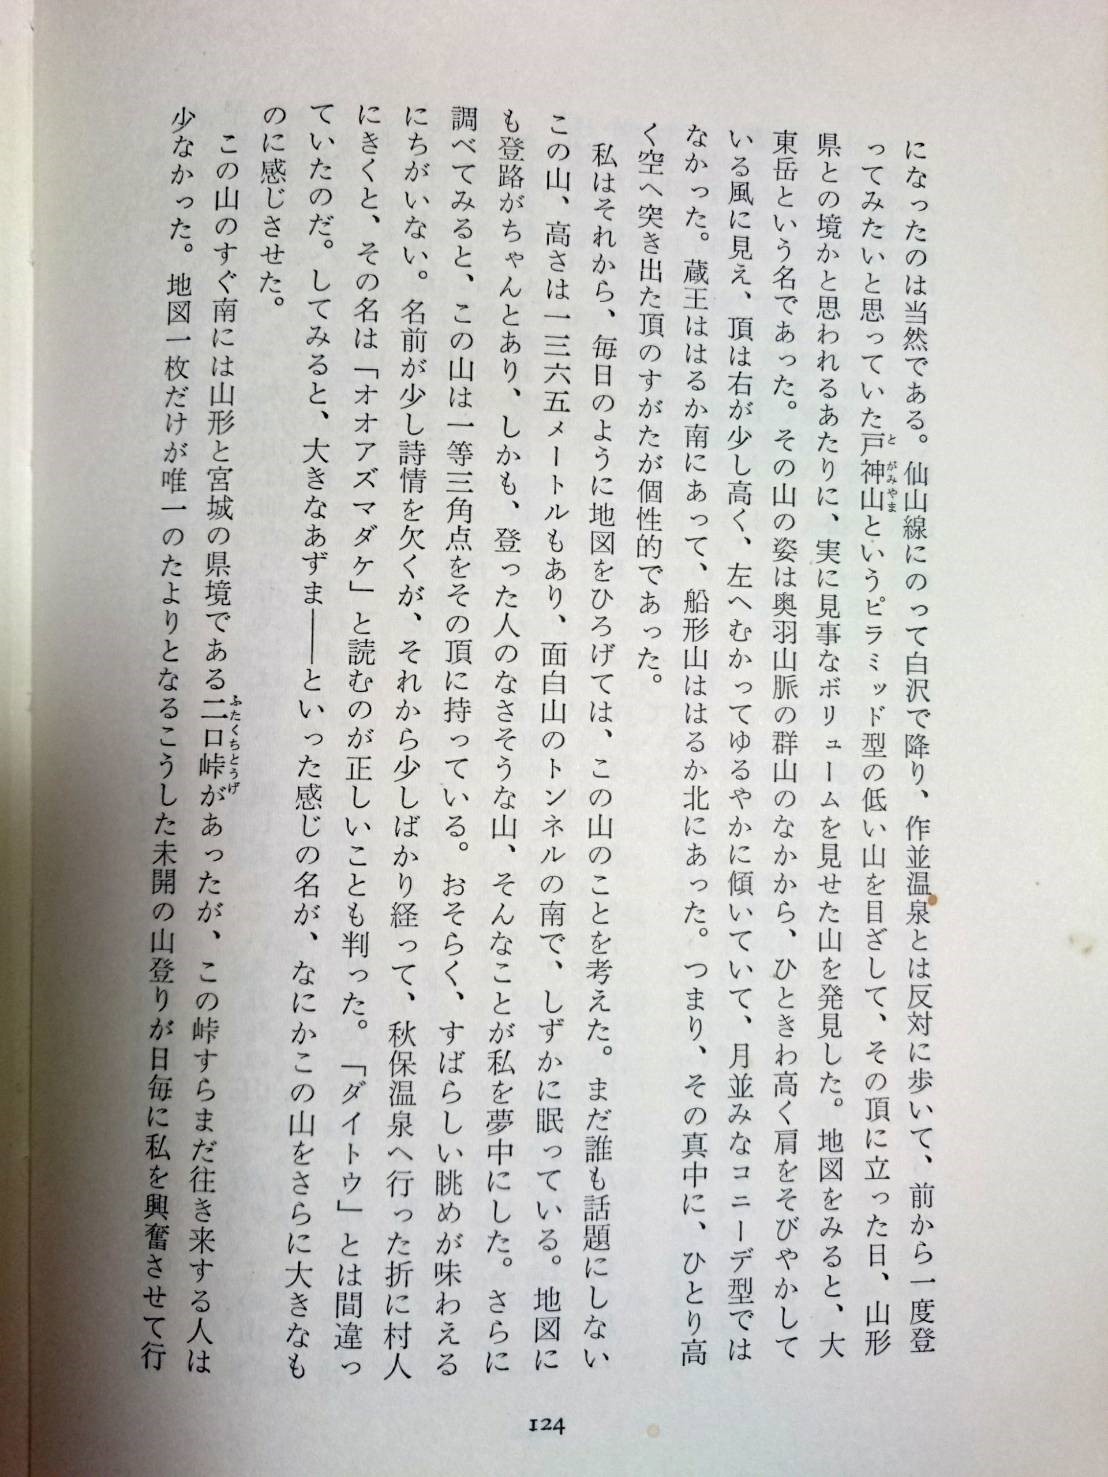 になったのは当然である。仙山線にのって白沢で降り、作並温泉とは反対に歩いて、前から一度登
ってみたいと思っていた戸神山というピラミッド型の低い山を目ざして、その頂に立った日、山形
とがみやま
県との境かと思われるあたりに、実に見事なボリュームを見せた山を発見した。地図をみると、大
東岳という名であった。その山の姿は奥羽山脈の群山のなかから、ひときわ高く肩をそびやかして
いる風に見え、頂は右が少し高く、左へむかってゆるやかに傾いていて、月並みなコニーデ型では
なかった。蔵王ははるか南にあって、船形山ははるか北にあった。つまり、その真中に、ひとり高
く空へ突き出た頂のすがたが個性的であった。
私はそれから、毎日のように地図をひろげては、この山のことを考えた。まだ誰も話題にしない
この山、高さは一三六五メートルもあり、面白山のトンネルの南で、しずかに眠っている。地図に
も登路がちゃんとあり、しかも、登った人のなさそうな山、そんなことが私を夢中にした。さらに
調べてみると、この山は一等三角点をその頂に持っている。おそらく、すばらしい眺めが味わえる
にちがいない。名前が少し詩情を欠くが、それから少しばかり経って、秋保温泉へ行った折に村人
にきくと、その名は「オオアズマダケ」と読むのが正しいことも判った。「ダイトウ」とは間違っ
ていたのだ。してみると、大きなあずま――といった感じの名が、なにかこの山をさらに大きなも
のに感じさせた。
この山のすぐ南には山形と宮城の県境である二口峠があったが、この峠すらまだ往き来する人は
ふたくちとうげ
少なかった。地図一枚だけが唯一のたよりとなるこうした未開の山登りが日毎に私を興奮させて行
124